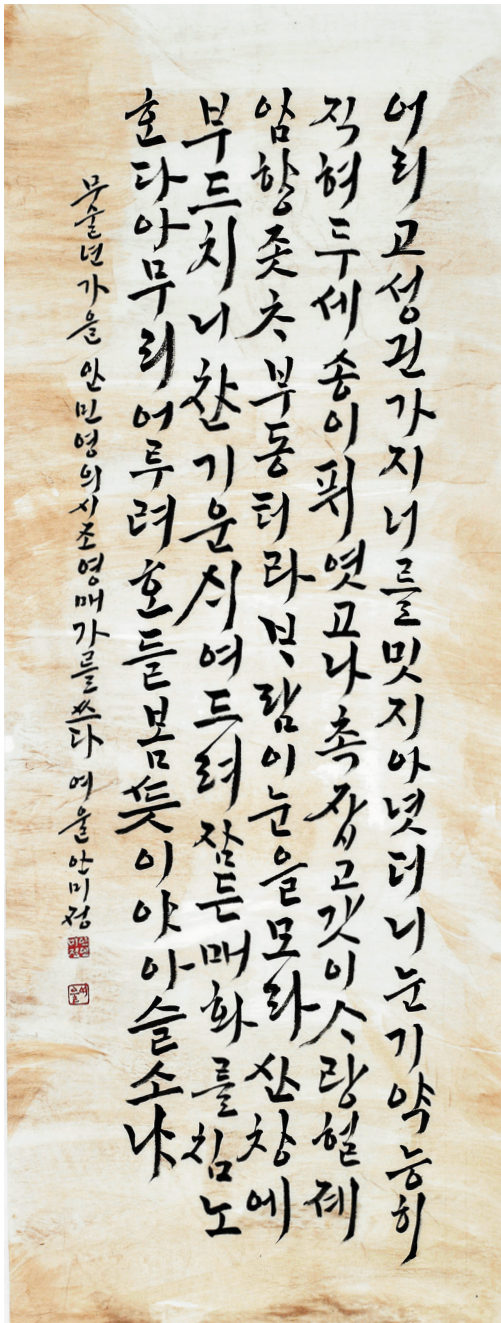 어리고성긘가지너를밋지아녓더니눈기약능히
직혀두세송이퓌엿고나촉잡고갓이ᄉᆞ랑헐졔
암향좃ᄎᆞ부동터라ᄇᆞ람이눈을모라산창에
부드치니찬기운ᄉᆡ여드러잠든매화를침노
호다아무리어루려호들봄ᄯᅳᆺ이야아슬소냐
무술년가을 안민영의시조영매가를쓰다 여울안미정